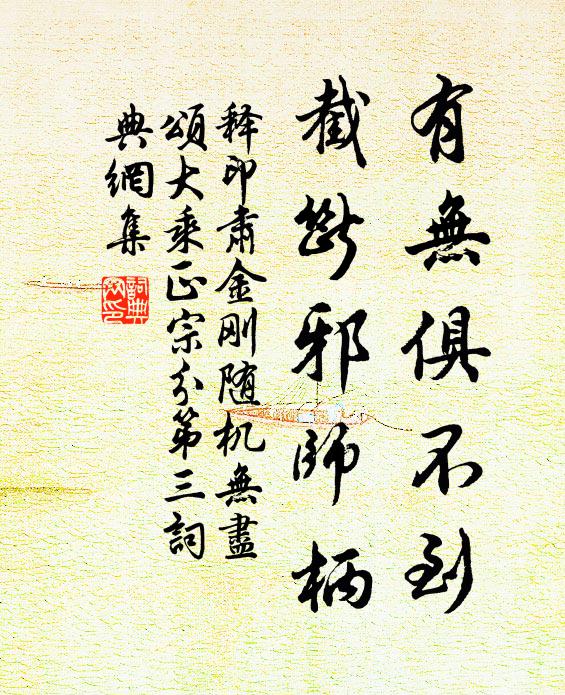 有無俱不到
截斷邪師柄
释印肃金刚随机無盡
頌大乘正宗分第三詞
典網集
詞典